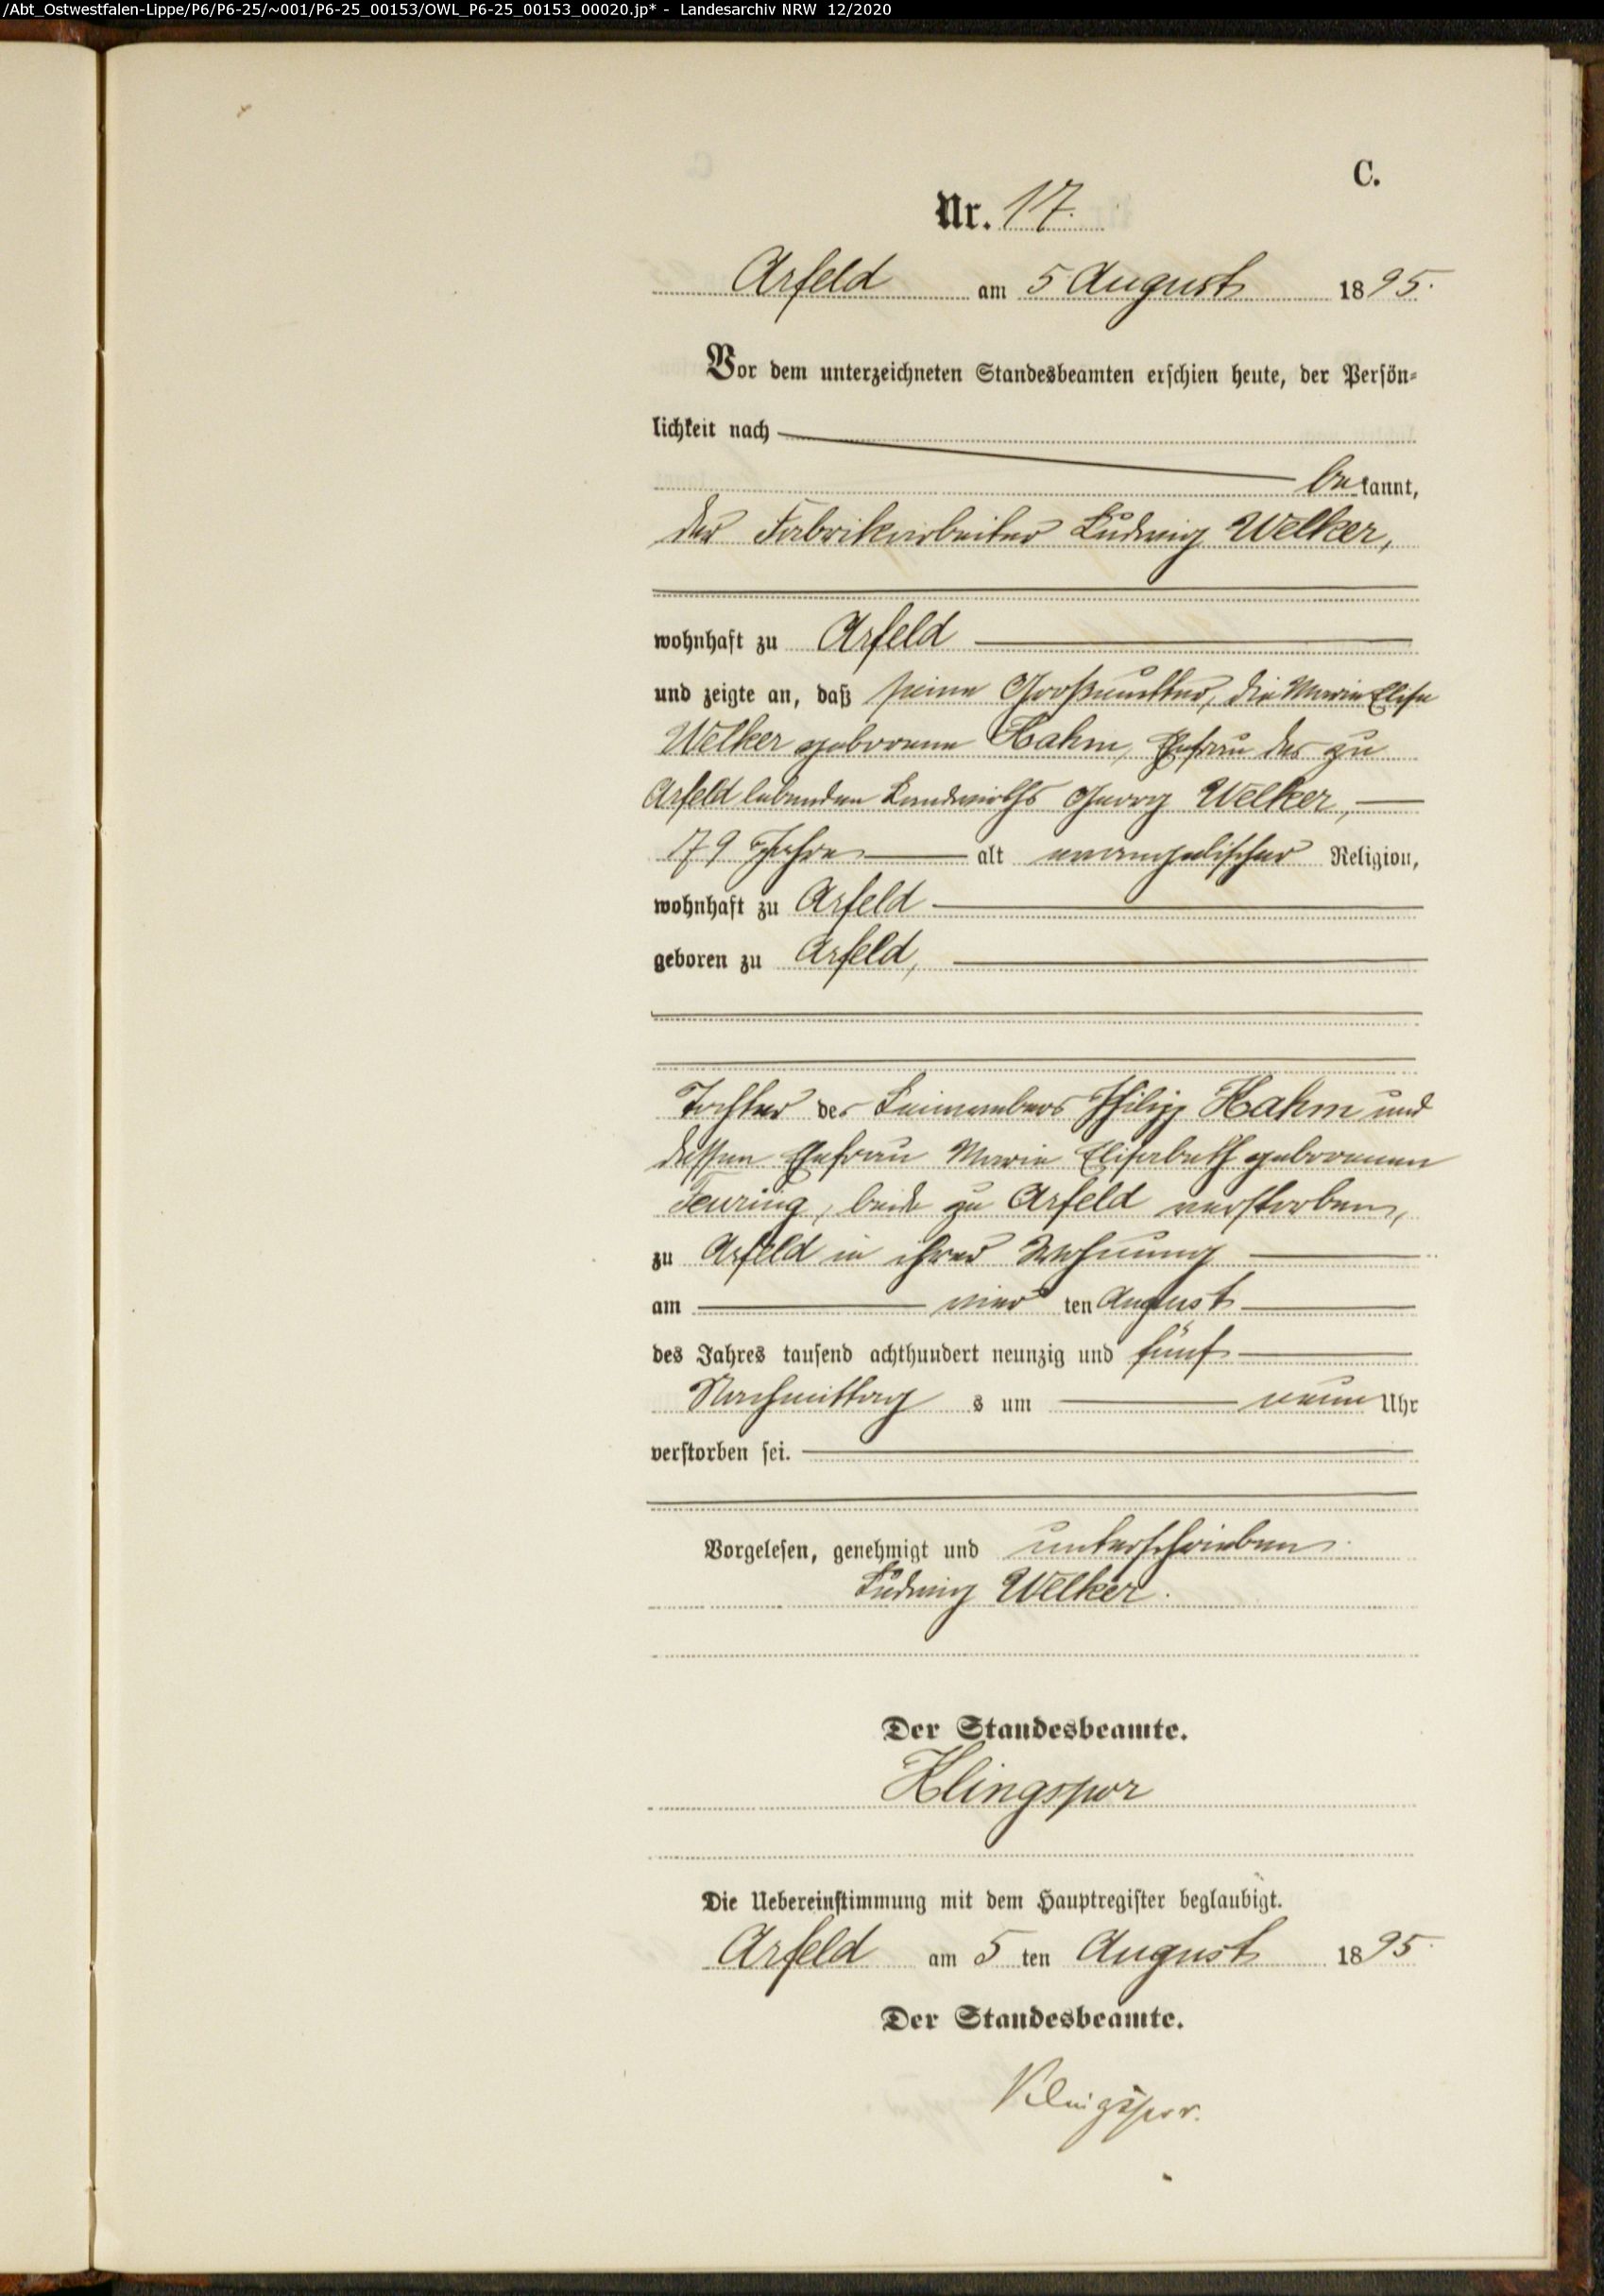 /Abt_Ostwestfalen-Lippe/P6/P6-25/~001/P6-25_00153/OWL_P6-25_00153_00020.jp* - Landesarchiv NRW 12/2020
C.
Nr. 17.
Arfeld am 5 August 1895.
Vor dem unterzeichneten Standesbeamten erschien heute, der Persön-
lichkeit nach
bekannt,
der Fabrikarbeiter Ludwig Welker,
wohnhaft zu Arfeld
und zeigte an, daß seine Großmutter, die Marie Elise
Welker geborene Hahm, Ehefrau des zu
Arfeld lebenden Landwirths Georg Welker,
79 Jahre alt evangelischer Religion,
wohnhaft zu Arfeld
geboren zu Arfeld,
Tochter des Leinewebers Philipp Hahm und
dessen Ehefrau Marie Elisabeth geborenen
Feuring, beide zu Arfeld verstorben,
zu Arfeld in ihrer Wohnung
am vier ten August
des Jahres tausend achthundert neunzig und fünf
Nachmittag s um neun Uhr
verstorben sei.
Vorgelesen, genehmigt und unterschrieben
Ludwig Welker.
Der Standesbeamte.
Klingspor
Die Uebereinstimmung mit dem Hauptregister beglaubigt.
Arfeld am 5 ten August 1895.
Der Standesbeamte.
Klingspor.